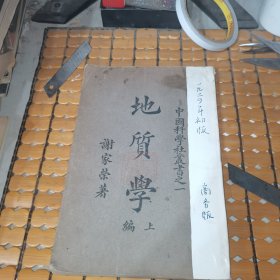 中國科學社叢書之一
地質學
上編
謝家榮著
一九二四年初版
商务版